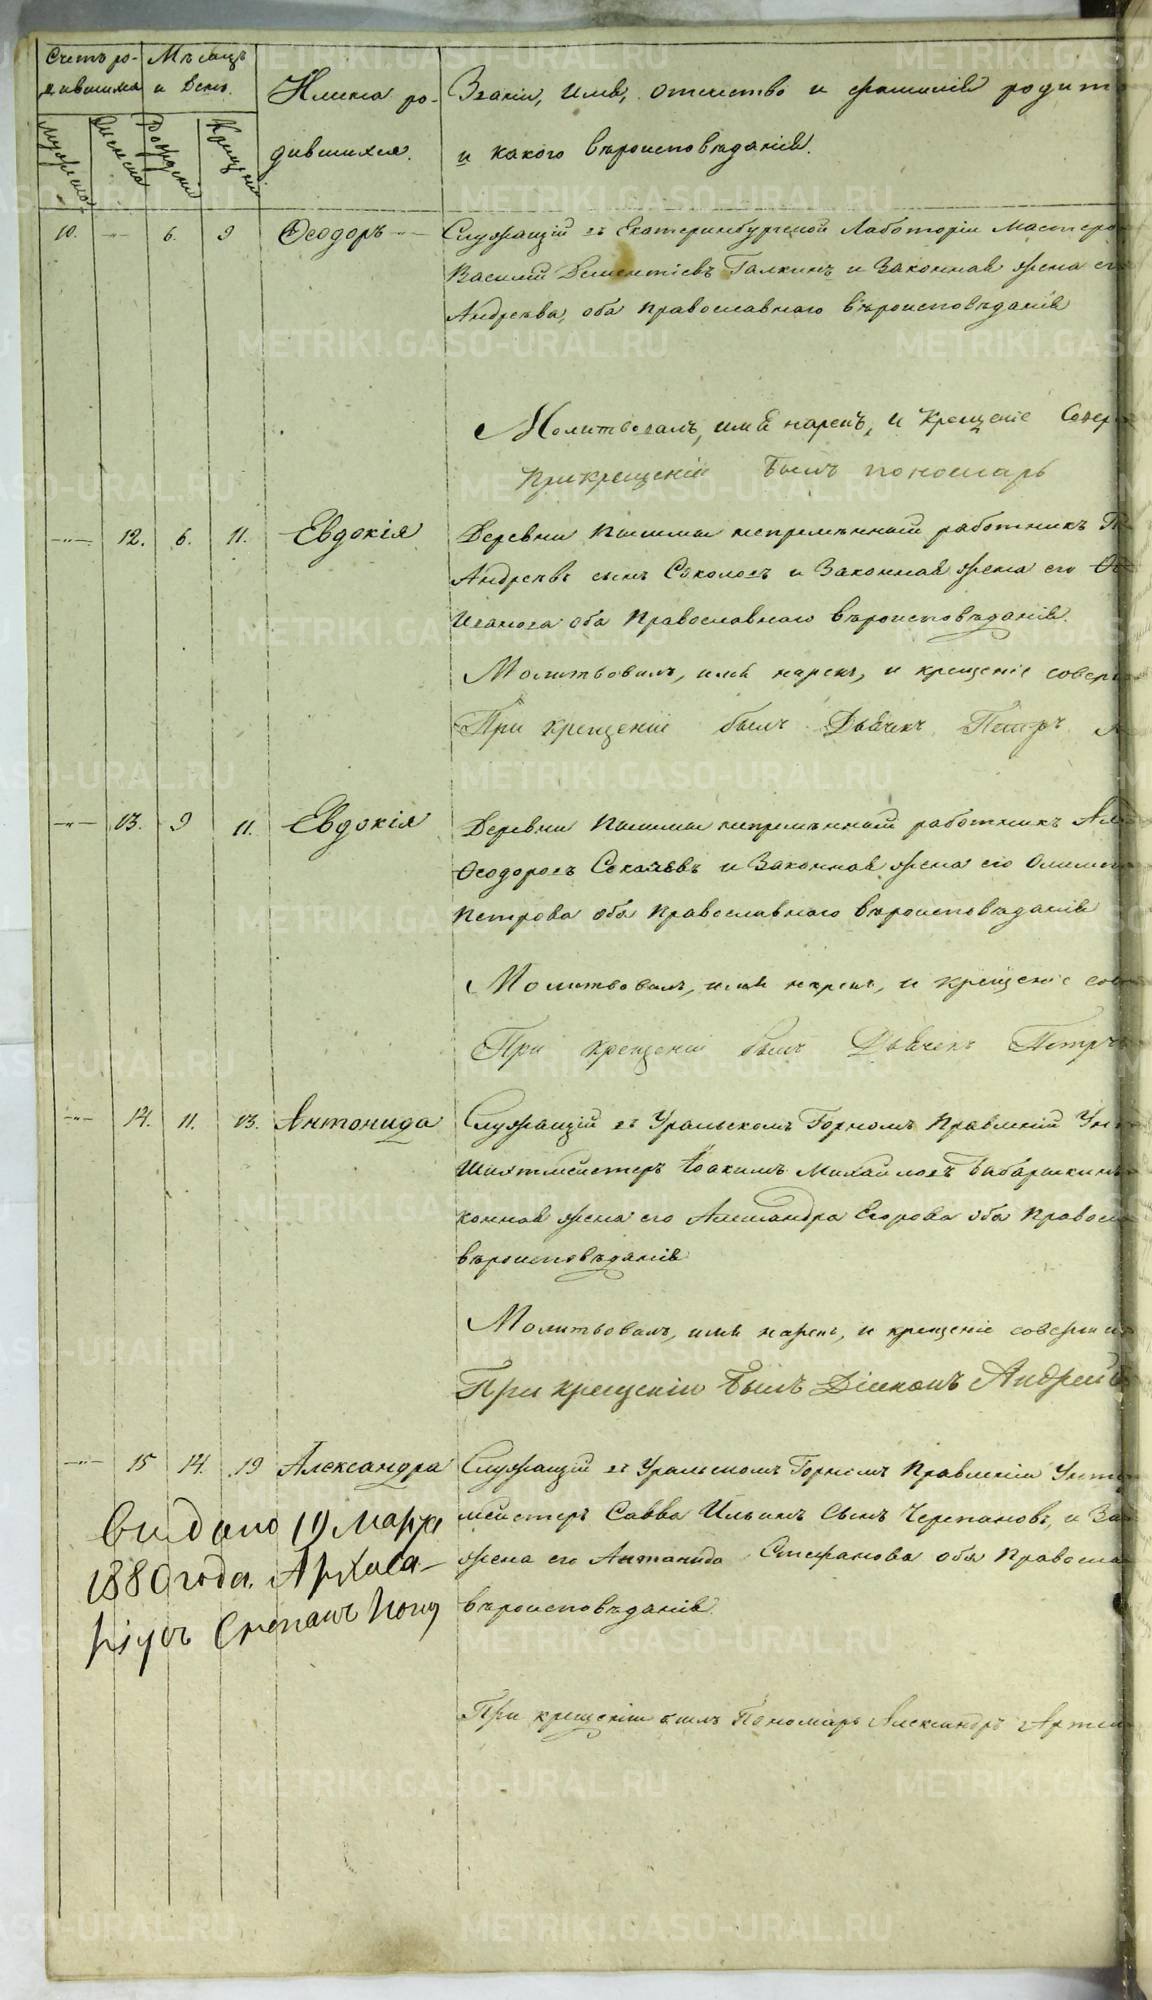 Счетъ ро- Мѣсяцъ
дившихся и День. Имена ро- Званіе, имя, отчество и фамилія родит
мужеска женска Рожденія Крещенія дившихся. и какого вѣроисповѣданія.
10. —"— 6. 9 Ѳеодоръ Служащій въ Екатеринбургской Лаботоріи Мастеро
Василій Дементіевъ Галкинъ и Законная жена ег
Андреева, оба православнаго вѣроисповѣданія
Молитвовалъ, имя нарекъ, и крещеніе Совер
При крещеніи былъ пономарь
—"— 12. 6. 11. Евдокія Деревни Пышмы непремѣнный работникъ
Андреевъ сынъ Соколовъ и Законная жена его
Иванова оба Православнаго вѣроисповѣданія.
Молитвовалъ, имя нарекъ, и крещеніе совер
При крещеніи былъ Дьячекъ Петръ
—"— 13. 9 11. Евдокія Деревни Пышмы непремѣнный работникъ
Ѳеодоровъ и Законная жена его
Петрова оба Православнаго вѣроисповѣданія
Молитвовалъ, имя нарекъ, и крещеніе сов
При крещеніи былъ Дьячекъ Петръ
—"— 14. 11. 13. Антонида Служащій въ Уральскомъ Горномъ Правленіи Ун
Шихтмейстеръ Іоакимъ Михайловъ Бабарыкинъ
конная жена его Александра Егорова оба Правосл
вѣроисповѣданія
Молитвовалъ, имя нарекъ, и крещеніе соверши
При крещеніи былъ Діаконъ Андрей
—"— 15 14. 19 Александра Служащій въ Уральскомъ Горномъ Правленіи Унт
мейстеръ Савва Ильинъ Сынъ Черепановъ, и За
жена его Антанида Стефанова оба Правосла
вѣроисповѣданія.
Видано 19 Марта
1880 года. Архива-
ріусъ Степанъ Попу
При крещеніи былъ Пономарь Александръ Артем
METRIKI.GASO-URAL.RU